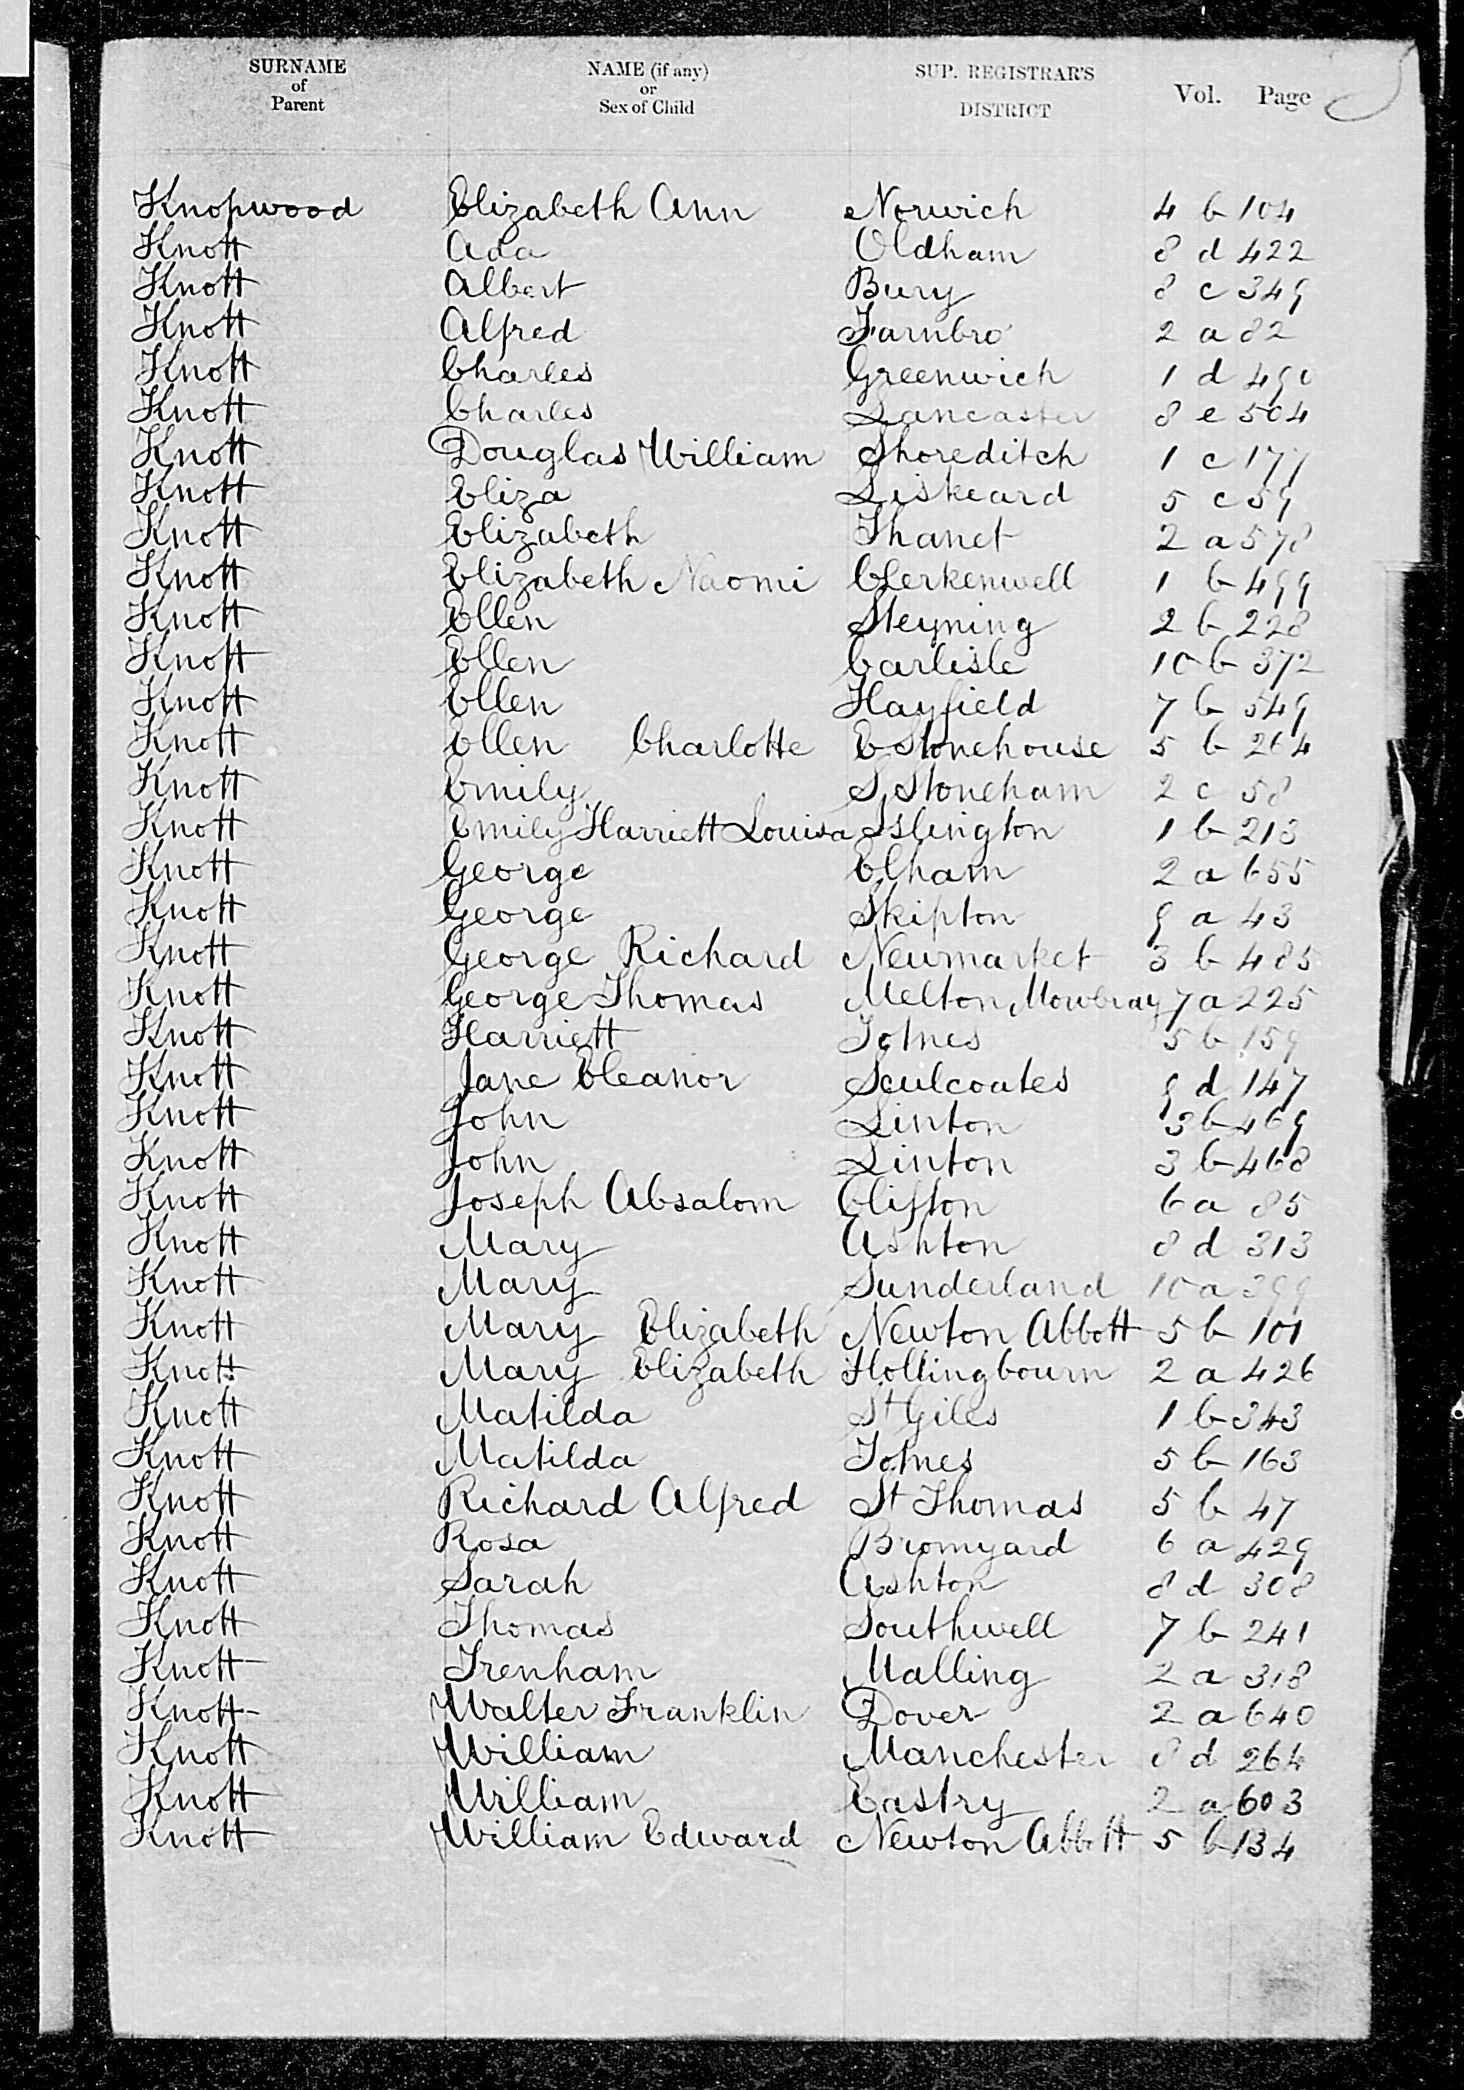 SURNAME of Parent NAME (if any) or Sex of Child SUP. REGISTRAR'S DISTRICT Vol. Page
Knopwood Elizabeth Ann Norwich 4 b 104
Knott Ada Oldham 8 d 422
Knott Albert Bury 8 c 349
Knott Alfred Farnbro' 2 a 82
Knott Charles Greenwich 1 d
Knott Charles Lancaster 8 e 504
Knott Douglas William Shoreditch 1 c 177
Knott Eliza Liskeard 5 c 59
Knott Elizabeth Thanet 2 a 578
Knott Elizabeth Naomi Clerkenwell 1 b 499
Knott Ellen Steyning 2 b 228
Knott Ellen Carlisle 10 b 372
Knott Ellen Hayfield 7 b 549
Knott Ellen Charlotte E Stonehouse 5 b 264
Knott Emily S. Stoneham 2 c 58
Knott Emily Harriett Louisa Islington 1 b 213
Knott George Elham 2 a 655
Knott George Skipton 9 a 43
Knott George Richard Newmarket 3 b 485
Knott George Thomas Melton Mowbray 7 a 225
Knott Harriett Totnes 5 b 159
Knott Jane Eleanor Sculcoates 9 d 147
Knott John Linton 3 b 469
Knott John Linton 3 b 468
Knott Joseph Absalom Clifton 6 a 85
Knott Mary Ashton 8 d 313
Knott Mary Sunderland 10 a 399
Knott Mary Elizabeth Newton Abbott 5 b 101
Knott Mary Elizabeth Hollingbourn 2 a 426
Knott Matilda St Giles 1 b 343
Knott Matilda Totnes 5 b 163
Knott Richard Alfred St Thomas 5 b 47
Knott Rosa Bromyard 6 a 429
Knott Sarah Ashton 8 d 308
Knott Thomas Southwell 7 b 241
Knott Trenham Malling 2 a 318
Knott Walter Franklin Dover 2 a 640
Knott William Manchester 8 d 264
Knott William Eastry 2 a 603
Knott William Edward Newton Abbott 5 b 134